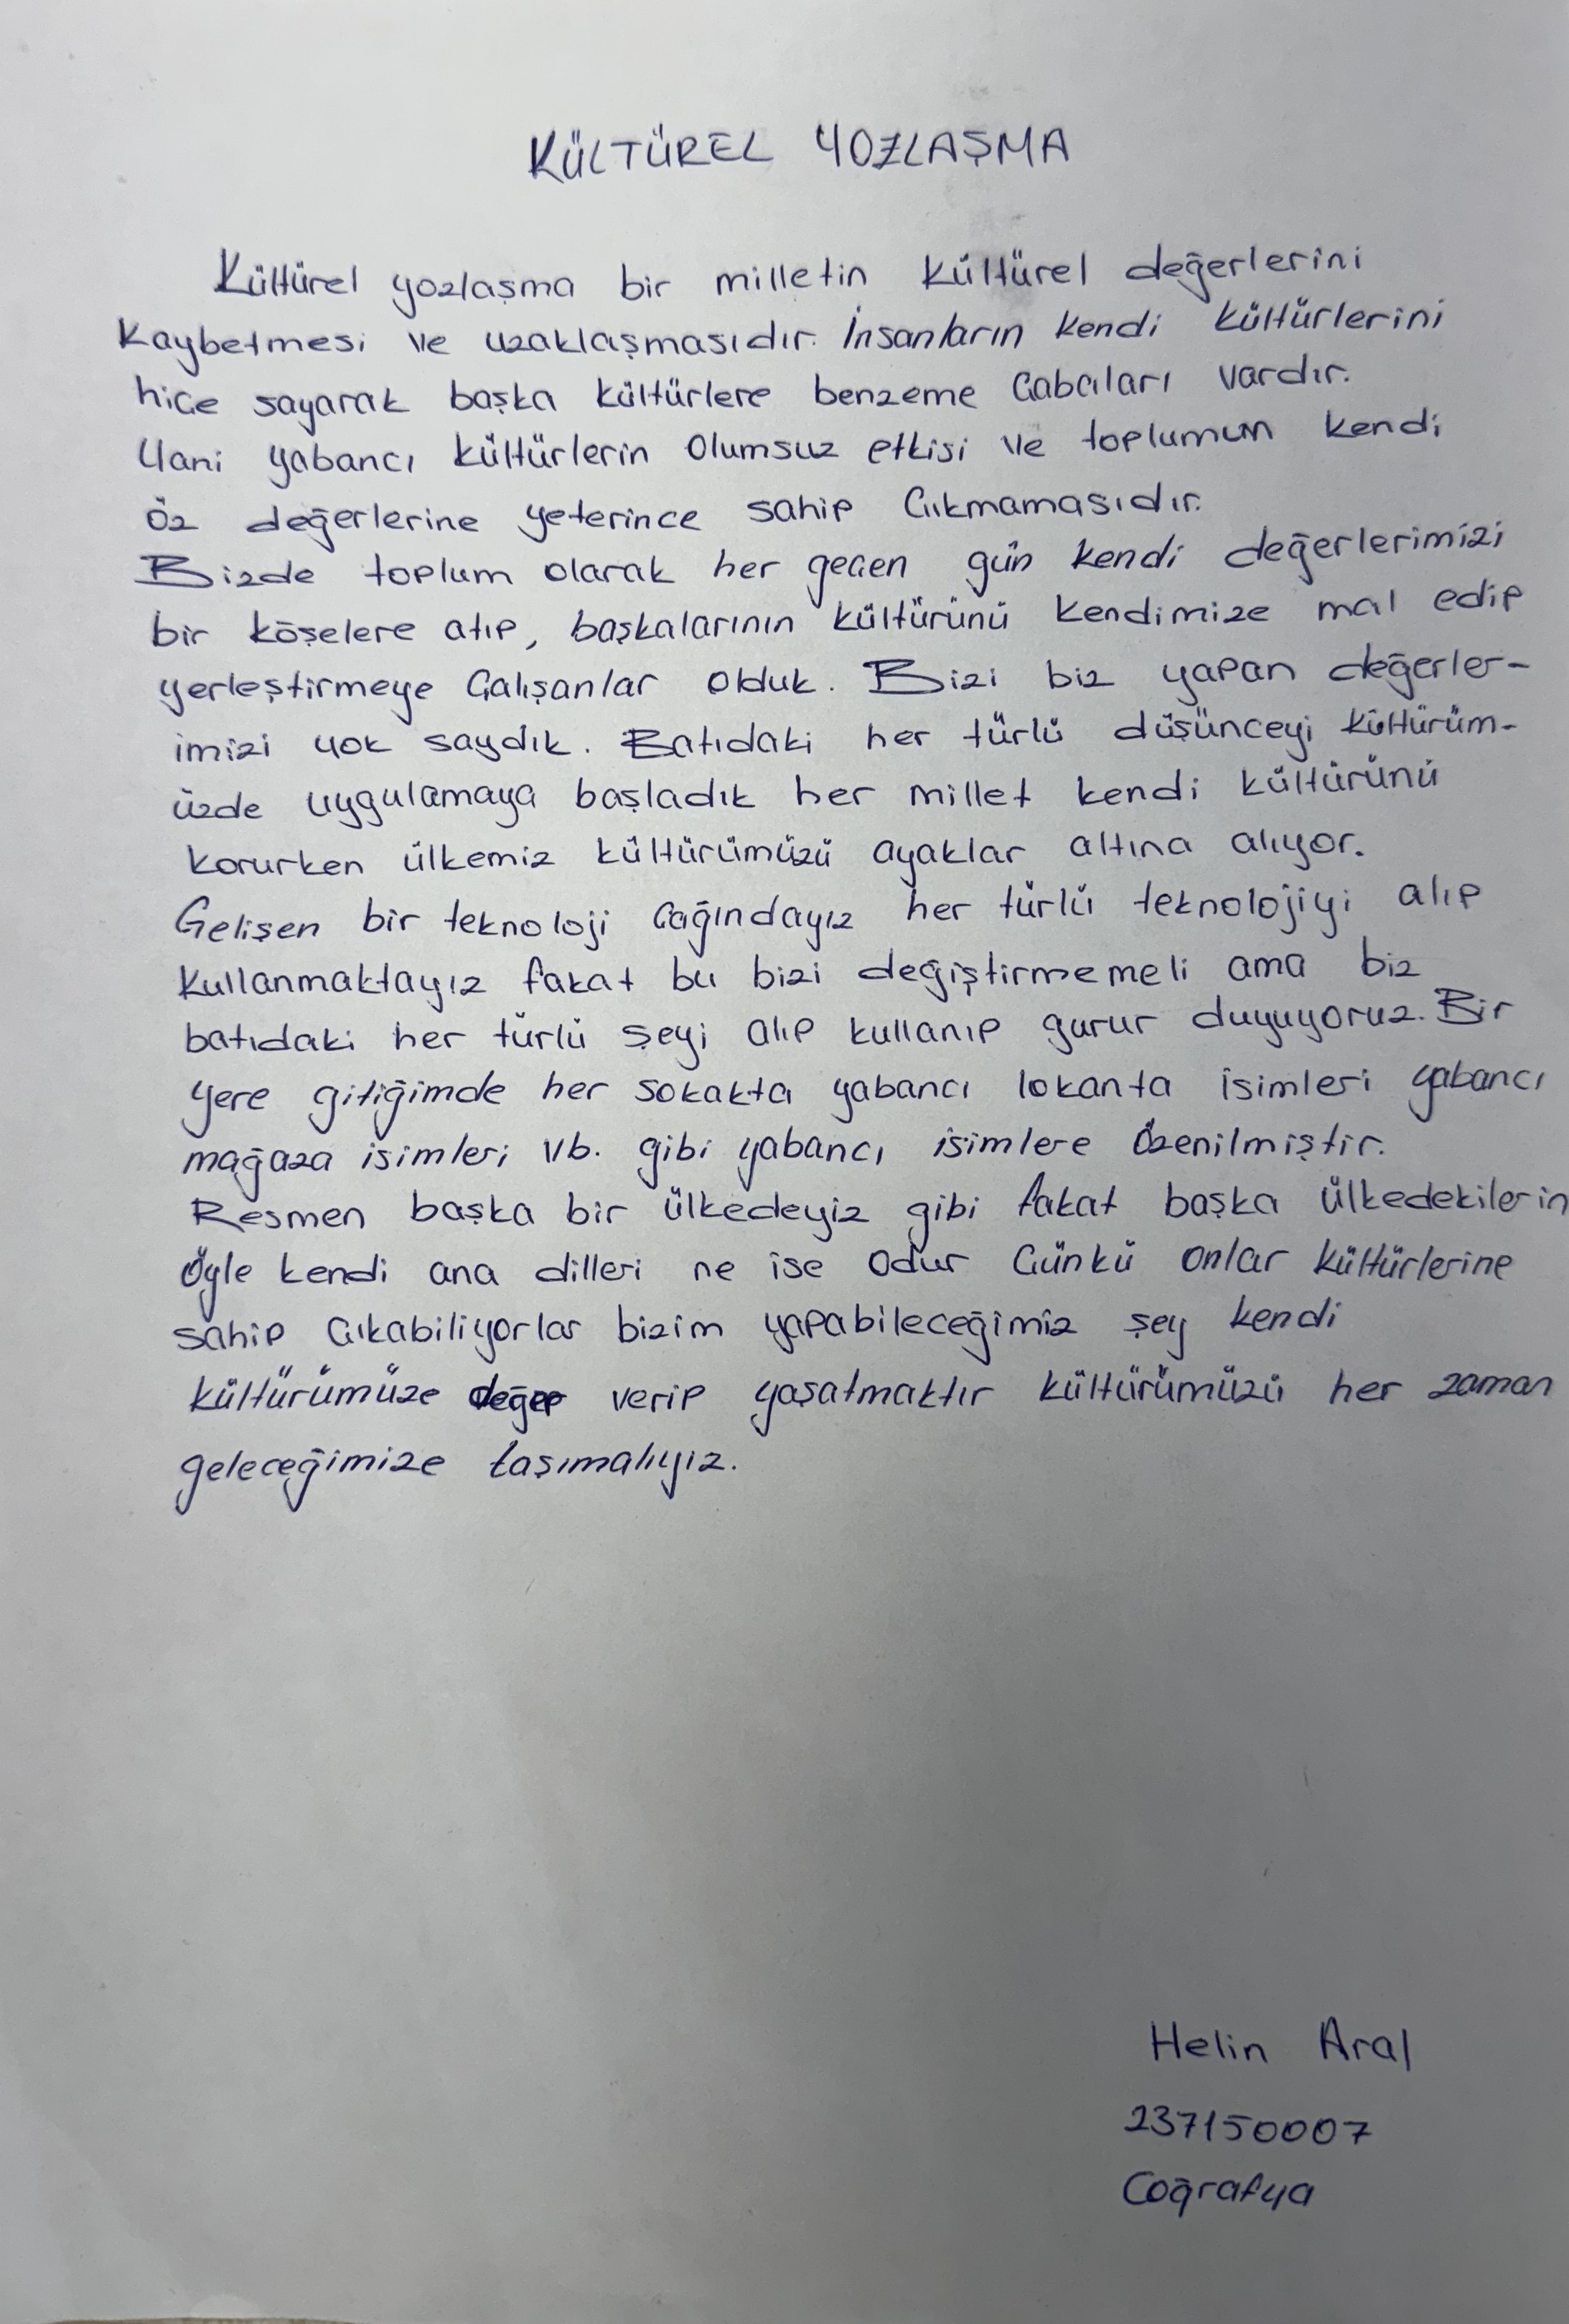 KÜLTÜREL YOZLAŞMA
Kültürel yozlaşma bir milletin kültürel değerlerini
kaybetmesi ve uzaklaşmasıdır. İnsanların kendi kültürlerini
hiçe sayarak başka kültürlere benzeme çabaları vardır.
Yani yabancı kültürlerin olumsuz etkisi ve toplumun kendi
öz değerlerine yeterince sahip çıkmamasıdır.
Bizde toplum olarak her geçen gün kendi değerlerimizi
bir köşelere atıp, başkalarının kültürünü kendimize mal edip
yerleştirmeye çalışanlar olduk. Bizi biz yapan değerler-
imizi yok saydık. Batıdaki her türlü düşünceyi kültürüm-
üzde uygulamaya başladık her millet kendi kültürünü
korurken ülkemiz kültürümüzü ayaklar altına alıyor.
Gelişen bir teknoloji çağındayız her türlü teknolojiyi alıp
kullanmaktayız fakat bu bizi değiştirmemeli ama biz
batıdaki her türlü şeyi alıp kullanıp gurur duyuyoruz. Bir
yere gitiğimde her sokakta yabancı lokanta isimleri yabancı
mağaza isimleri vb. gibi yabancı isimlere özenilmiştir.
Resmen başka bir ülkedeyiz gibi fakat başka ülkedekilerin
öyle kendi ana dilleri ne ise odur çünkü onlar kültürlerine
sahip çıkabiliyorlar bizim yapabileceğimiz şey kendi
kültürümüze değer verip yaşatmaktır kültürümüzü her zaman
geleceğimize taşımalıyız.
Helin Aral
237150007
Coğrafya